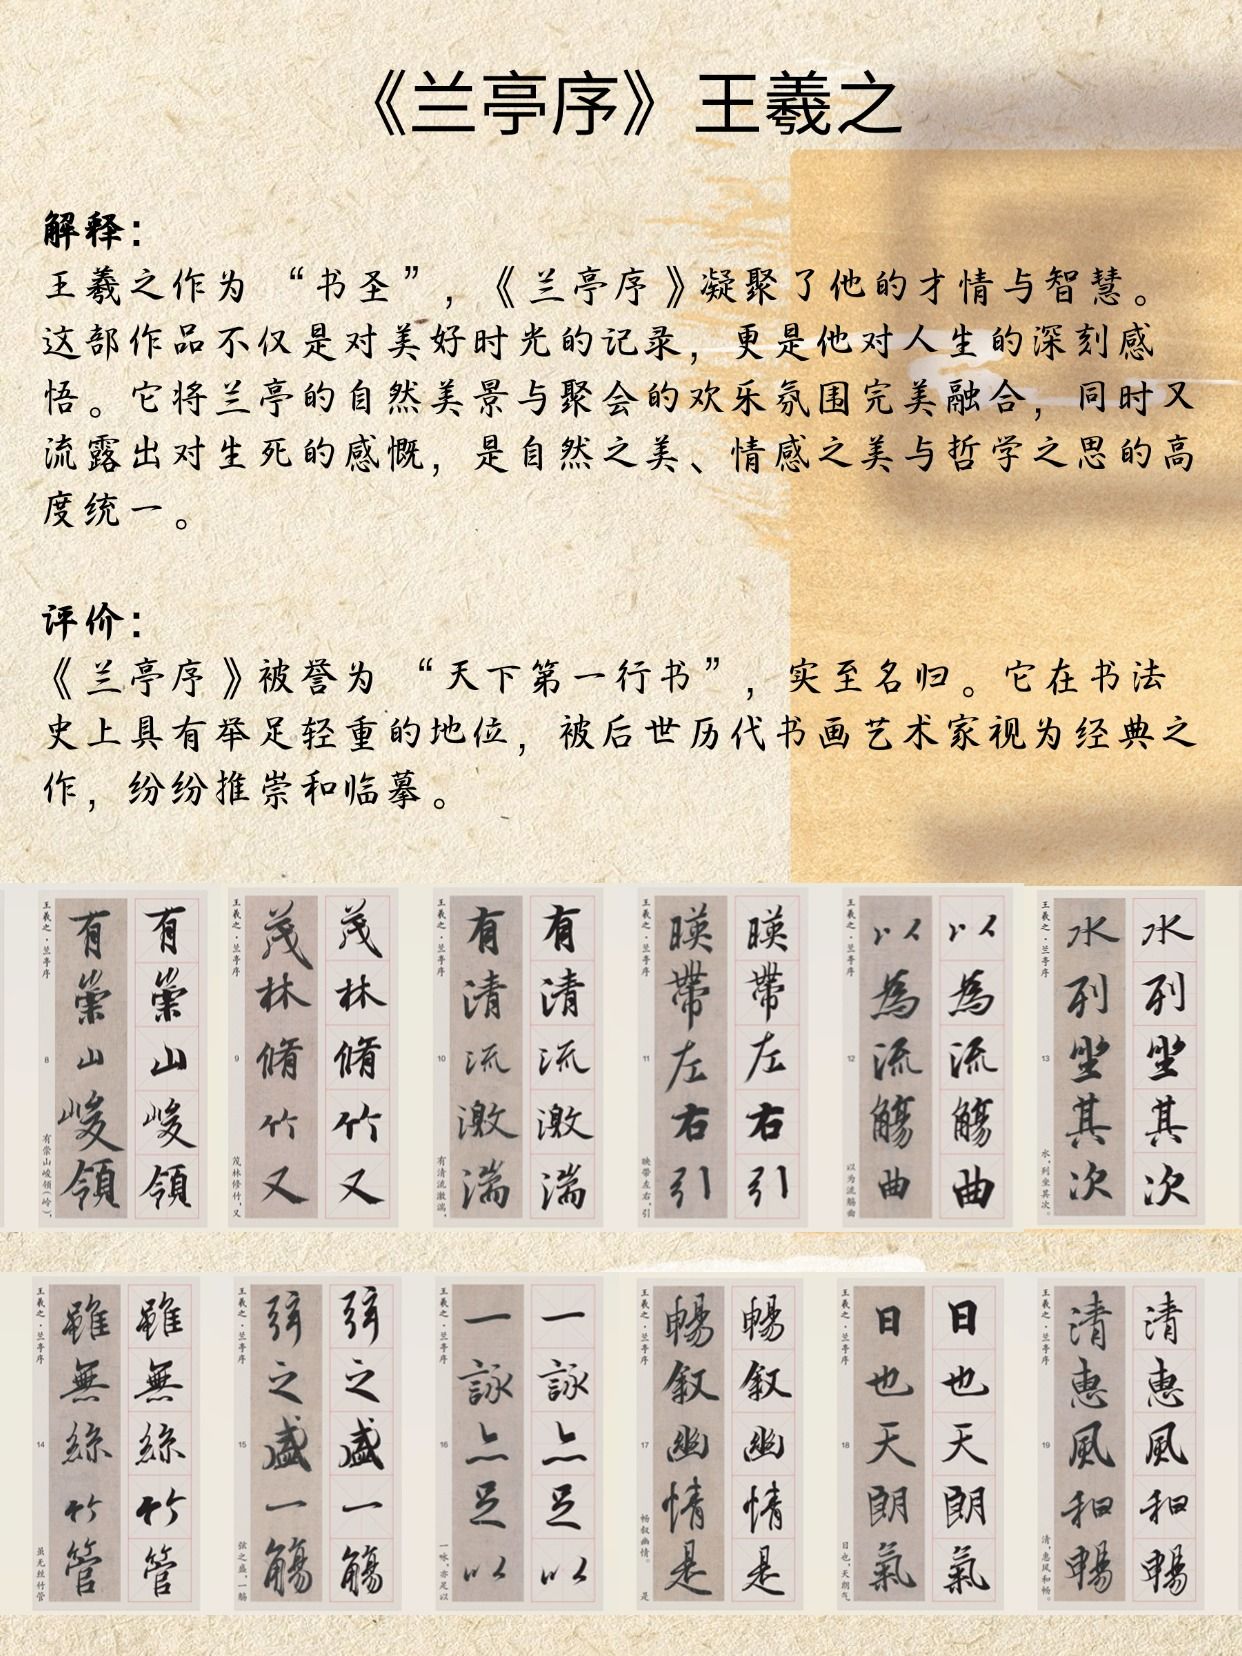 《兰亭序》王羲之
解释：
王羲之作为“书圣”，《兰亭序》凝聚了他的才情与智慧。
这部作品不仅是对美好时光的记录，更是他对人生的深刻感
悟。它将兰亭的自然美景与聚会的欢乐氛围完美融合，同时又
流露出对生死的感慨，是自然之美、情感之美与哲学之思的高
度统一。
评价：
《兰亭序》被誉为“天下第一行书”，实至名归。它在书法
史上具有举足轻重的地位，被后世历代书画艺术家视为经典之
作，纷纷推崇和临摹。
王羲之·兰亭序
8
有崇山峻领（岭），
有崇山峻領
有崇山峻領
王羲之·兰亭序
9
茂林修竹，又
茂林脩竹又
茂林脩竹又
王羲之·兰亭序
10
有清流激湍，
有清流激湍
有清流激湍
王羲之·兰亭序
11
映带左右，引
暎帶左右引
暎帶左右引
王羲之·兰亭序
12
以为流觞曲
以為流觴曲
以為流觴曲
王羲之·兰亭序
13
水，列坐其次。
水列坐其次
水列坐其次
王羲之·兰亭序
14
虽无丝竹管
雖無絲竹管
雖無絲竹管
王羲之·兰亭序
15
弦之盛，一觞
弦之盛一觴
弦之盛一觴
王羲之·兰亭序
16
一咏，亦足以
一詠亦足以
一詠亦足以
王羲之·兰亭序
17
畅叙幽情。是
暢叙幽情是
暢叙幽情是
王羲之·兰亭序
18
日也，天朗气
日也天朗氣
日也天朗氣
王羲之·兰亭序
19
清，惠风和畅。
清惠風和暢
清惠風和暢